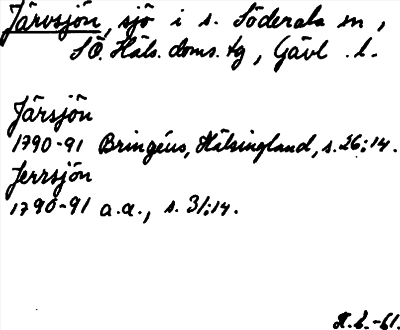 Järvsjön, sjö i s. Söderala sn,
SÖ. Häls. doms. tg, Gävl. l.
Järsjön
1790-91 Bringéus, Hälsingland, s. 26:14.
Jerrsjön
1790-91 a.a., s. 31:14.
H.L.-61.